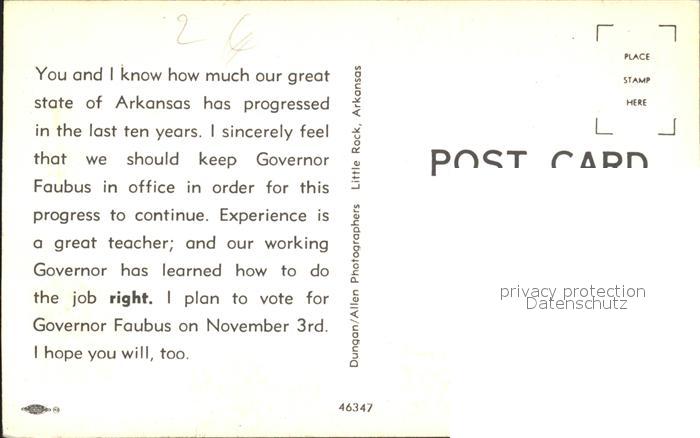 2 6
You and I know how much our great
state of Arkansas has progressed
in the last ten years. I sincerely feel
that we should keep Governor
Faubus in office in order for this
progress to continue. Experience is
a great teacher; and our working
Governor has learned how to do
the job right. I plan to vote for
Governor Faubus on November 3rd.
I hope you will, too.
Dungan/Allen Photographers Little Rock, Arkansas
46347
PLACE
STAMP
HERE
POST CARD
privacy protection
Datenschutz